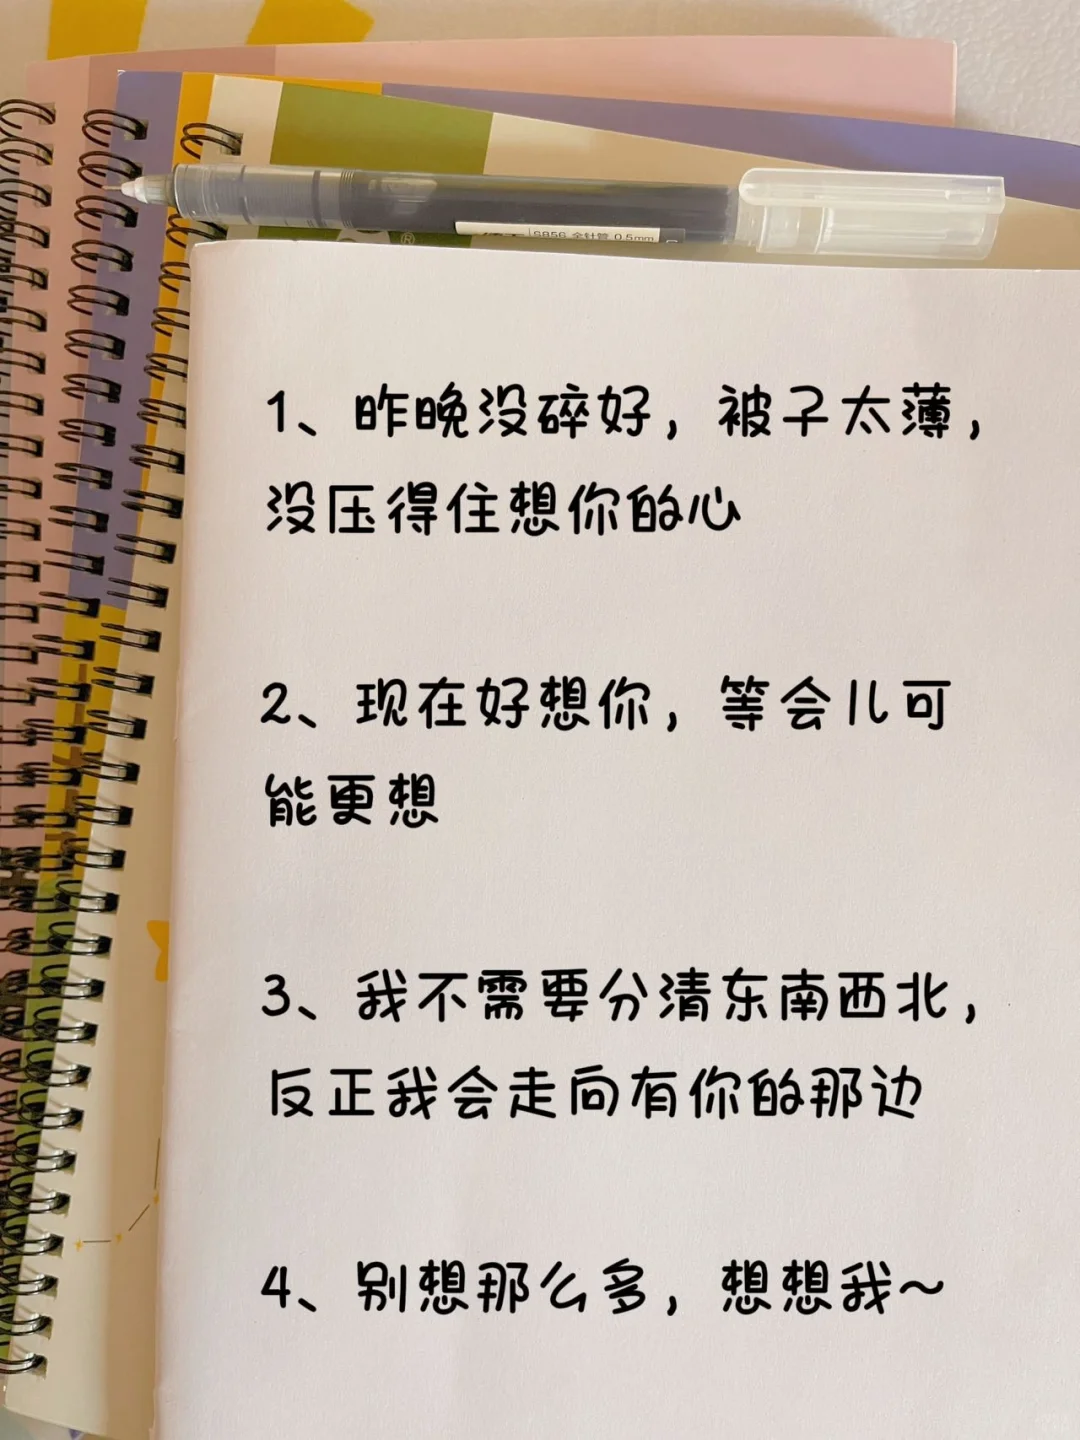 S856 全针管 0.5mm
®
1、昨晚没碎好，被子太薄，
没压得住想你的心
2、现在好想你，等会儿可
能更想
3、我不需要分清东南西北，
反正我会走向有你的那边
4、别想那么多，想想我~